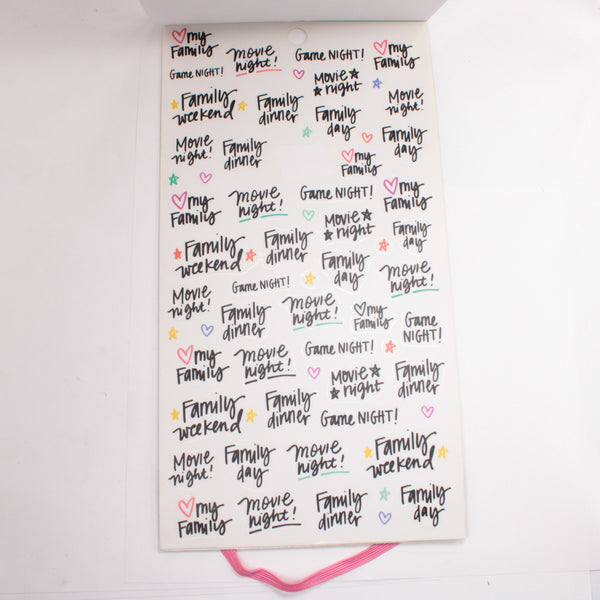 my
Family
movie
night!
Game NIGHT!
my
Family
Game NIGHT!
Movie
night
Family
weekend
Family
dinner
Family
day
Movie
night!
Movie
night!
Family
dinner
my
Family
Family
day
my
Family
movie
night!
Game NIGHT!
my
Family
Movie
night
Family
weekend
Family
dinner
Family
day
Family
day
Game NIGHT!
movie
night!
Movie
night!
Family
dinner
movie
night!
my
Family
Game
NIGHT!
my
Family
movie
night!
Game NIGHT!
Movie
night
Family
dinner
Family
weekend
Family
dinner
Game NIGHT!
Movie
night!
Family
day
movie
night!
Family
weekend
my
Family
movie
night!
Family
dinner
Family
day